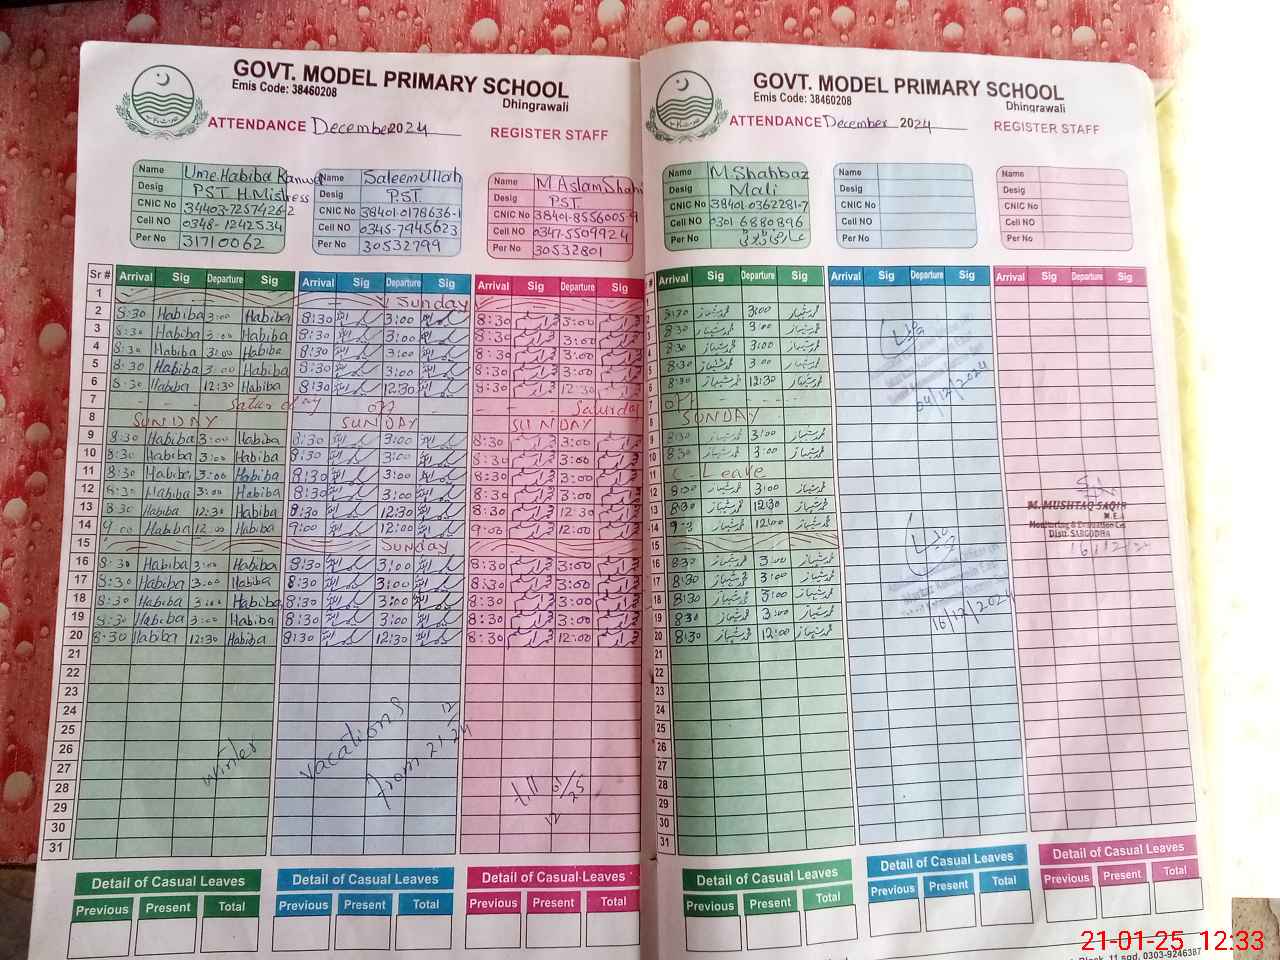 GOVT. MODEL PRIMARY SCHOOL
Emis Code: 38460208
Dhingrawali
ATTENDANCE December 2024
REGISTER STAFF
Name Ume.Habiba Kanwal
Desig PST H.Mistress
CNIC No 34403-7257426-2
Cell NO 0348-1242534
Per No 31710062
Name SaleemUllah
Desig P.S.T.
CNIC No 38401-0178636-1
Cell NO 0345-7945623
Per No 30532799
Name M.AslamShahi
Desig PST
CNIC No 38401-8556005-9
Cell NO 0347-5509924
Per No 30532801
Sr # Arrival Sig Departure Sig Arrival Sig Departure Sig Arrival Sig Departure Sig
1 Sunday
2 8:30 Habiba 3:00 Habiba 8:30 3:00 8:30 3:00
3 8:30 Habiba 3:00 Habiba 8:30 3:00 8:30 3:00
4 8:30 Habiba 3:00 Habiba 8:30 3:00 8:30 3:00
5 8:30 Habiba 3:00 Habiba 8:30 3:00 8:30 3:00
6 8:30 Habiba 12:30 Habiba 8:30 12:30 8:30 12:30
7 Saturday off Saturday
8 SUNDAY SUNDAY SUNDAY
9 8:30 Habiba 3:00 Habiba 8:30 3:00 8:30 3:00
10 8:30 Habiba 3:00 Habiba 8:30 3:00 8:30 3:00
11 8:30 Habiba 3:00 Habiba 8:30 3:00 8:30 3:00
12 8:30 Habiba 3:00 Habiba 8:30 3:00 8:30 3:00
13 8:30 Habiba 12:30 Habiba 8:30 12:30 8:30 12:30
14 9:00 Habiba 12:00 Habiba 9:00 12:00 9:00 12:00
15 Sunday
16 8:30 Habiba 3:00 Habiba 8:30 3:00 8:30 3:00
17 8:30 Habiba 3:00 Habiba 8:30 3:00 8:30 3:00
18 8:30 Habiba 3:00 Habiba 8:30 3:00 8:30 3:00
19 8:30 Habiba 3:00 Habiba 8:30 3:00 8:30 3:00
20 8:30 Habiba 12:30 Habiba 8:30 12:30 8:30 12:00
21
22
23
24
25
26
27
28
29
30
31
winter vacations from 21/12/24 till
Detail of Casual Leaves
Previous Present Total
Detail of Casual Leaves
Previous Present Total
Detail of Casual Leaves
Previous Present Total
GOVT. MODEL PRIMARY SCHOOL
Emis Code: 38460208
Dhingrawali
ATTENDANCE December 2024
REGISTER STAFF
Name M.Shahbaz
Desig Mali
CNIC No 38401-0362281-7
Cell NO 0301-6880896
Per No عارضی ڈیوٹی
Name
Desig
CNIC No
Cell NO
Per No
Name
Desig
CNIC No
Cell NO
Per No
# Arrival Sig Departure Sig Arrival Sig Departure Sig Arrival Sig Departure Sig
1
2 8:30 محمد شہباز 3:00 محمد شہباز
3 8:30 محمد شہباز 3:00 محمد شہباز
4 8:30 محمد شہباز 3:00 محمد شہباز
5 8:30 محمد شہباز 3:00 محمد شہباز
6 8:30 محمد شہباز 12:30 محمد شہباز
7 OFF
8 SUNDAY
9 8:30 محمد شہباز 3:00 محمد شہباز
10 8:30 محمد شہباز 3:00 محمد شہباز
11 C-Leave
12 8:30 محمد شہباز 3:00 محمد شہباز
13 8:30 محمد شہباز 12:30 محمد شہباز
14 9:00 محمد شہباز 12:00 محمد شہباز
15
16 8:30 محمد شہباز 3:00 محمد شہباز
17 8:30 محمد شہباز 3:00 محمد شہباز
18 8:30 محمد شہباز 3:00 محمد شہباز
19 8:30 محمد شہباز 3:00 محمد شہباز
20 8:30 محمد شہباز 12:00 محمد شہباز
21
22
23
24
25
26
27
28
29
30
31
04/12/2024
16/12/2024
M. MUSHTAQ SAQIB
M.E.A
Monitoring & Evaluation Cell
Distt. SARGODHA
16/12/24
Detail of Casual Leaves
Previous Present Total
Detail of Casual Leaves
Previous Present Total
Detail of Casual Leaves
Previous Present Total
Block, 11 sgd, 0303-9246387
21-01-25 12:33